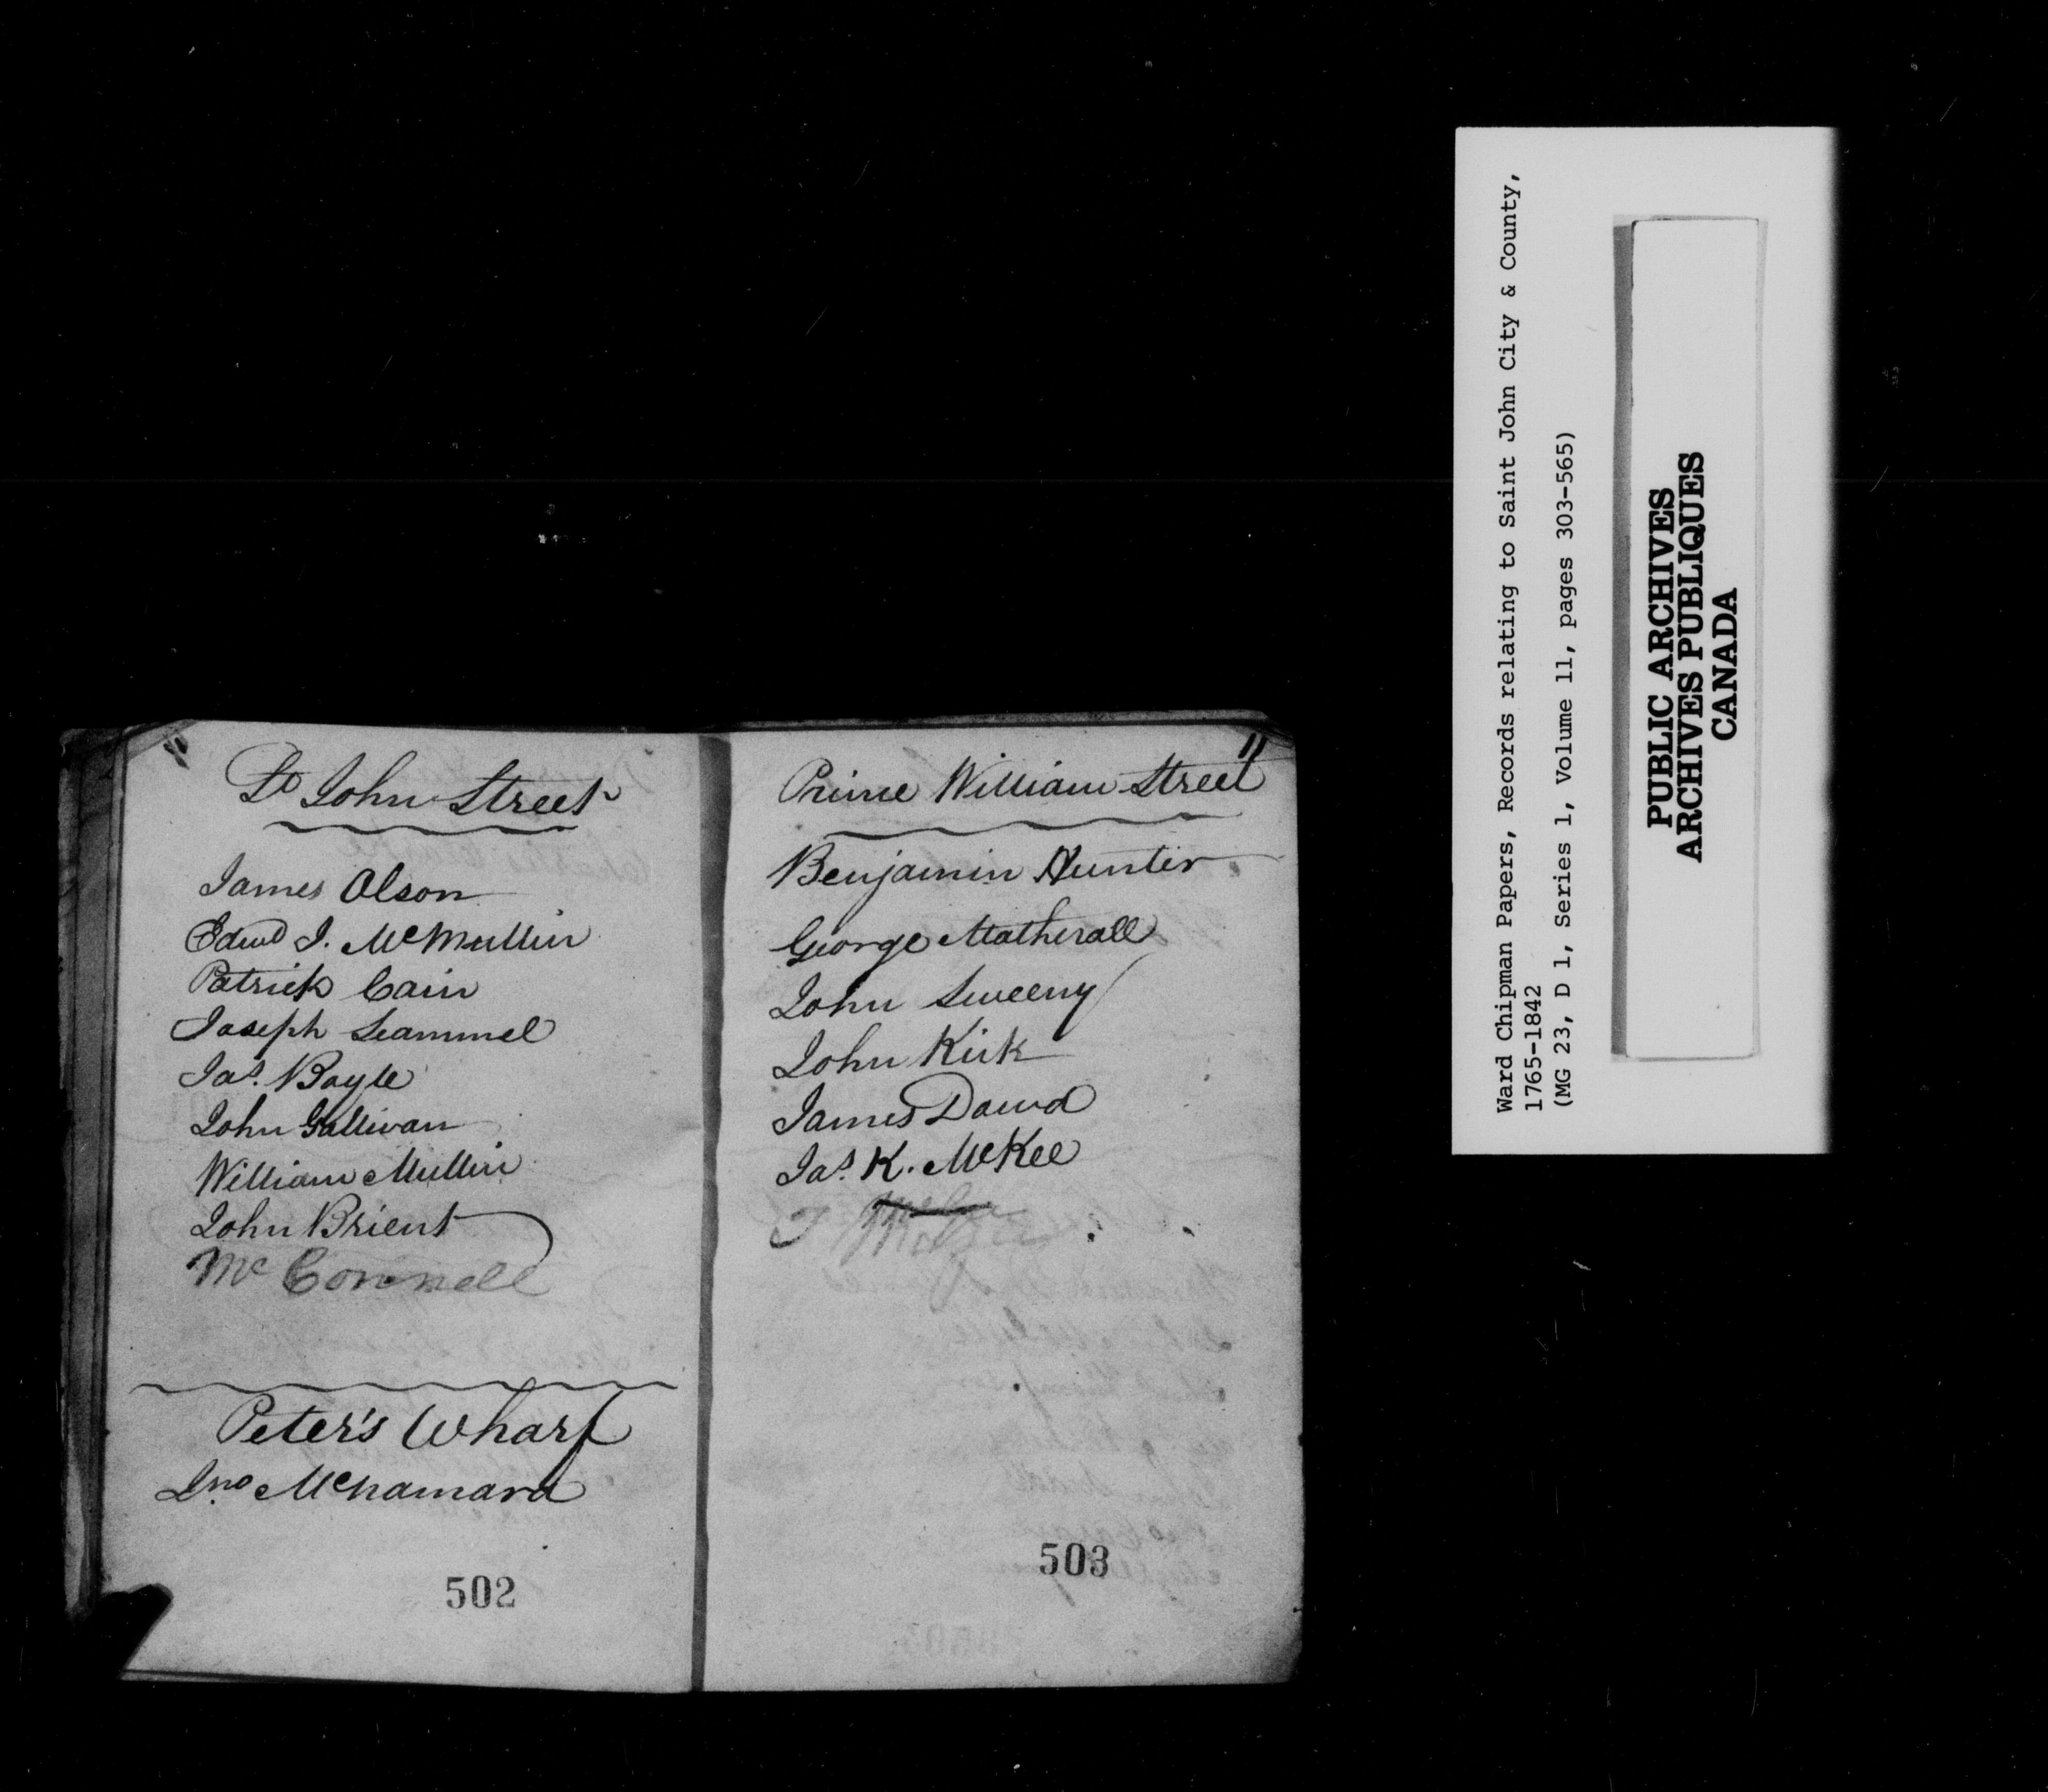 St John Street
James Olson
Edwd J. McMullin
Patrick Cain
Joseph Scammel
Jas. Boyle
John Gallivan
William Mullin
John Brient
Mc Connell
Peter's Wharf
Jno McNamara
502
11
Prince William Street
Benjamin Hunter
George Matherall
John Sweeny
John Kirk
James Dowd
Jas. K. McKee
503
Ward Chipman Papers, Records relating to Saint John City & County,
1765-1842
(MG 23, D 1, Series 1, Volume 11, pages 303-565)
PUBLIC ARCHIVES
ARCHIVES PUBLIQUES
CANADA